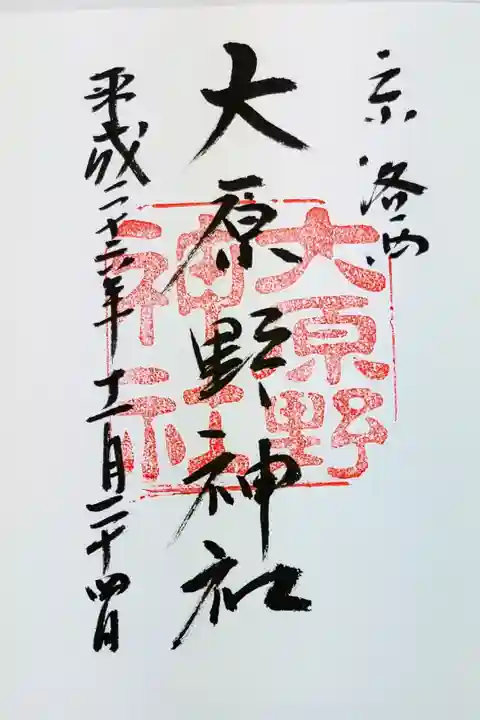 京洛西
大原野神社
平成二十六年十一月二十四日
大原野
神社